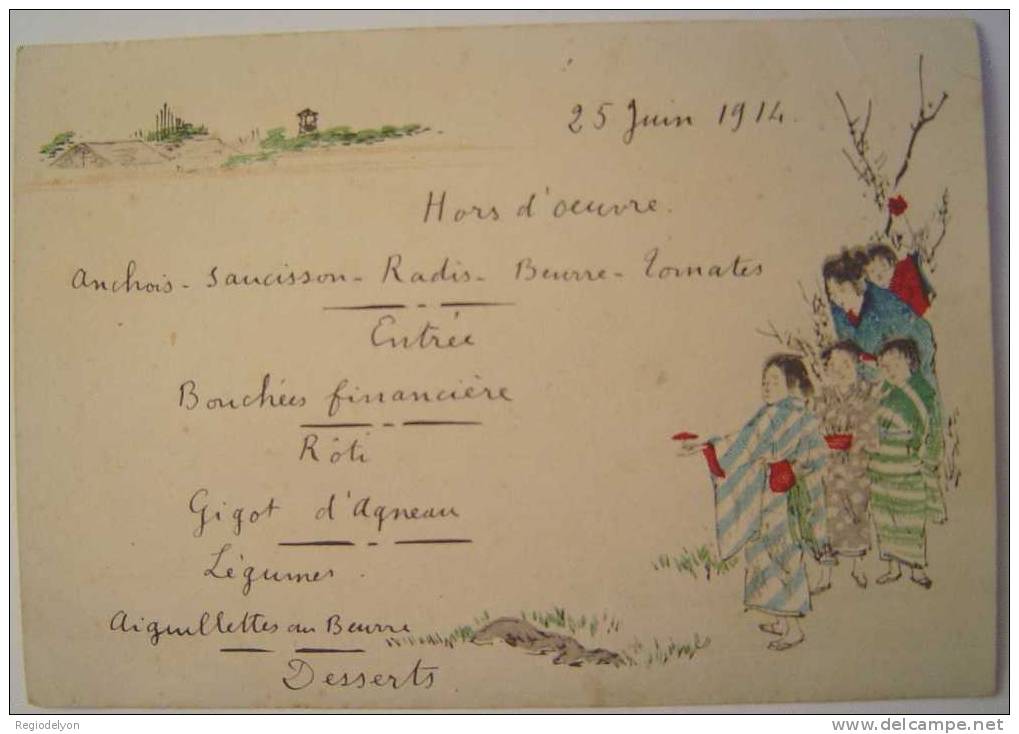 25 Juin 1914.
Hors d'oeuvre.
Anchois - Saucisson - Radis - Beurre - Tomates
Entrée
Bouchées financière
Rôti
Gigot d'Agneau
Légumes.
Aiguillettes au Beurre
Desserts
Regiodelyon
www.delcampe.net